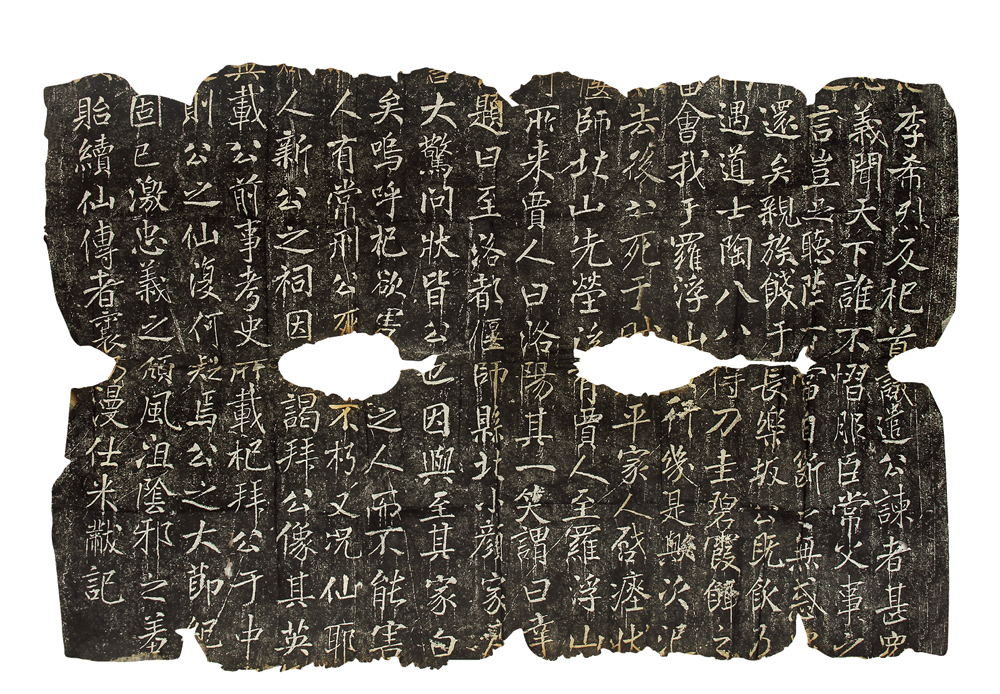 李希烈反杞首議遣公諫者甚衆
義聞天下誰不慴服臣常父事之
言豈止聽陛下當自斷無惑
還矣親族餞于長樂坂公既飲乃
遇道士陶八八得刀圭碧霞餌之
會我于羅浮山行幾是與次汜
去後公死于賊平家人啓瘞狀
偃師北山先塋後有賈人至羅浮山
所来賈人曰洛陽其一笑謂曰幸
題曰至洛都偃師縣北小顏家
大驚問狀皆公也因與至其家白
矣嗚呼杞欲害之人而不能害
人有常刑公死不朽又況仙耶
人新公之祠因謁拜公像其英
載公前事考史所載杞拜公于中
則公之仙復何疑焉公之大節絕
固已激忠義之頹風沮陰邪之羞
貽續仙傳者襄漫仕米黻記